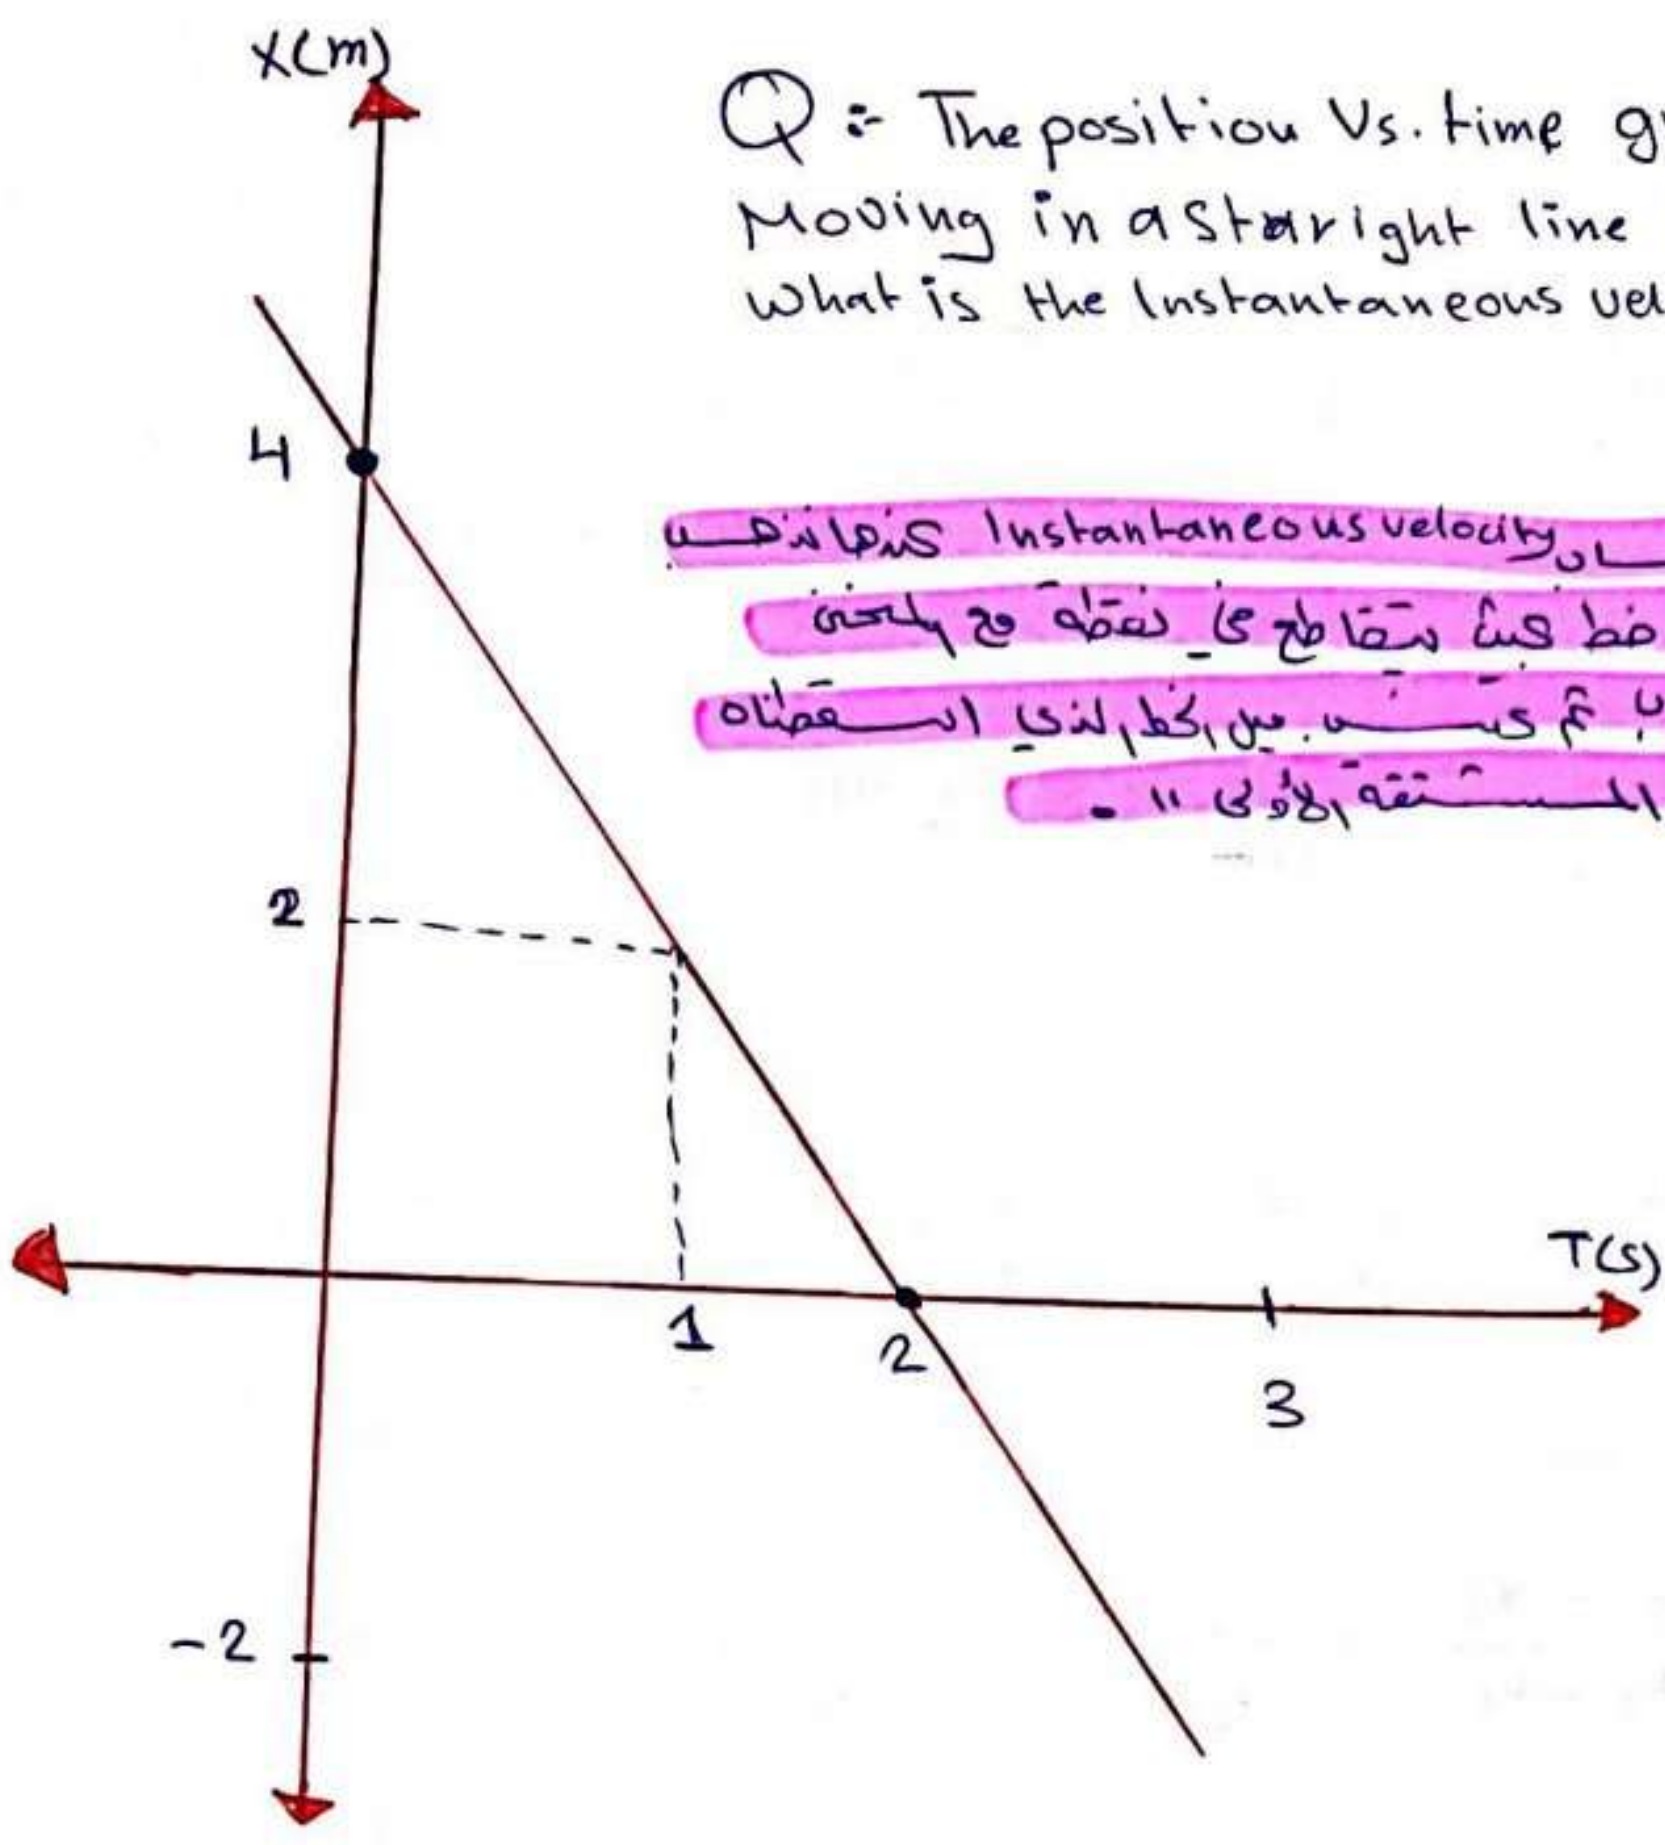 X(m)
Q :- The position Vs. time g
Moving in a staright line
What is the Instantaneous vel
4
Instantaneous velocity عندما نذهب
خط بحيث يتقاطع في نقطة مع المنحنى
ثم نحسب ميل الخط الذي اسقطناه
المشتقة الأولى " .
2
T(s)
1
2
3
-2